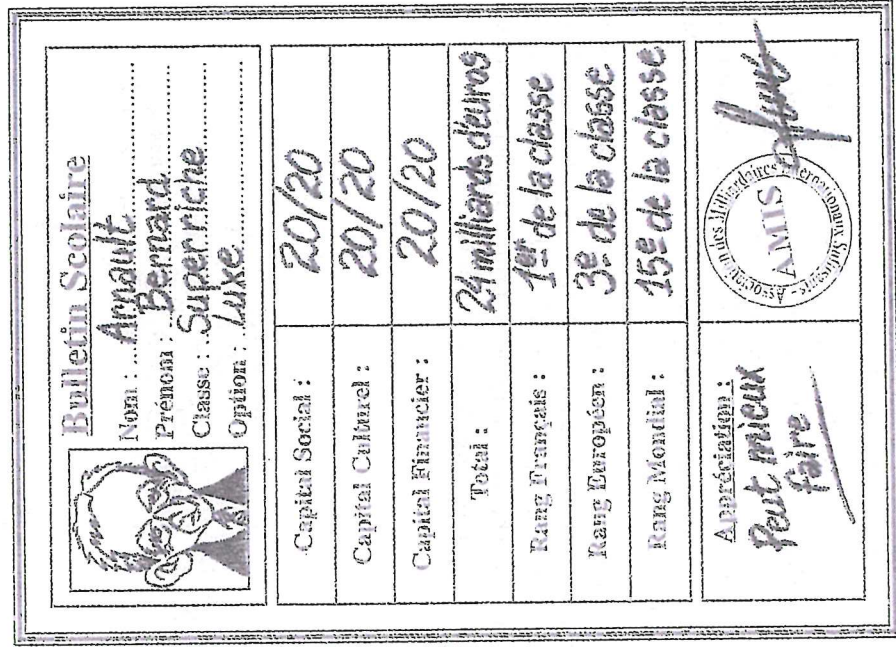 Bulletin Scolaire
Nom : Arnault
Prénom : Bernard
Classe : Super riche
Option : Luxe
Capital Social : 20/20
Capital Culturel : 20/20
Capital Financier : 20/20
Total : 24 milliards d'euros
Rang Français : 1er de la classe
Rang Européen : 3e de la classe
Rang Mondial : 15e de la classe
Appréciation :
Peut mieux
faire
Association des Milliardaires Internationaux
AMIS